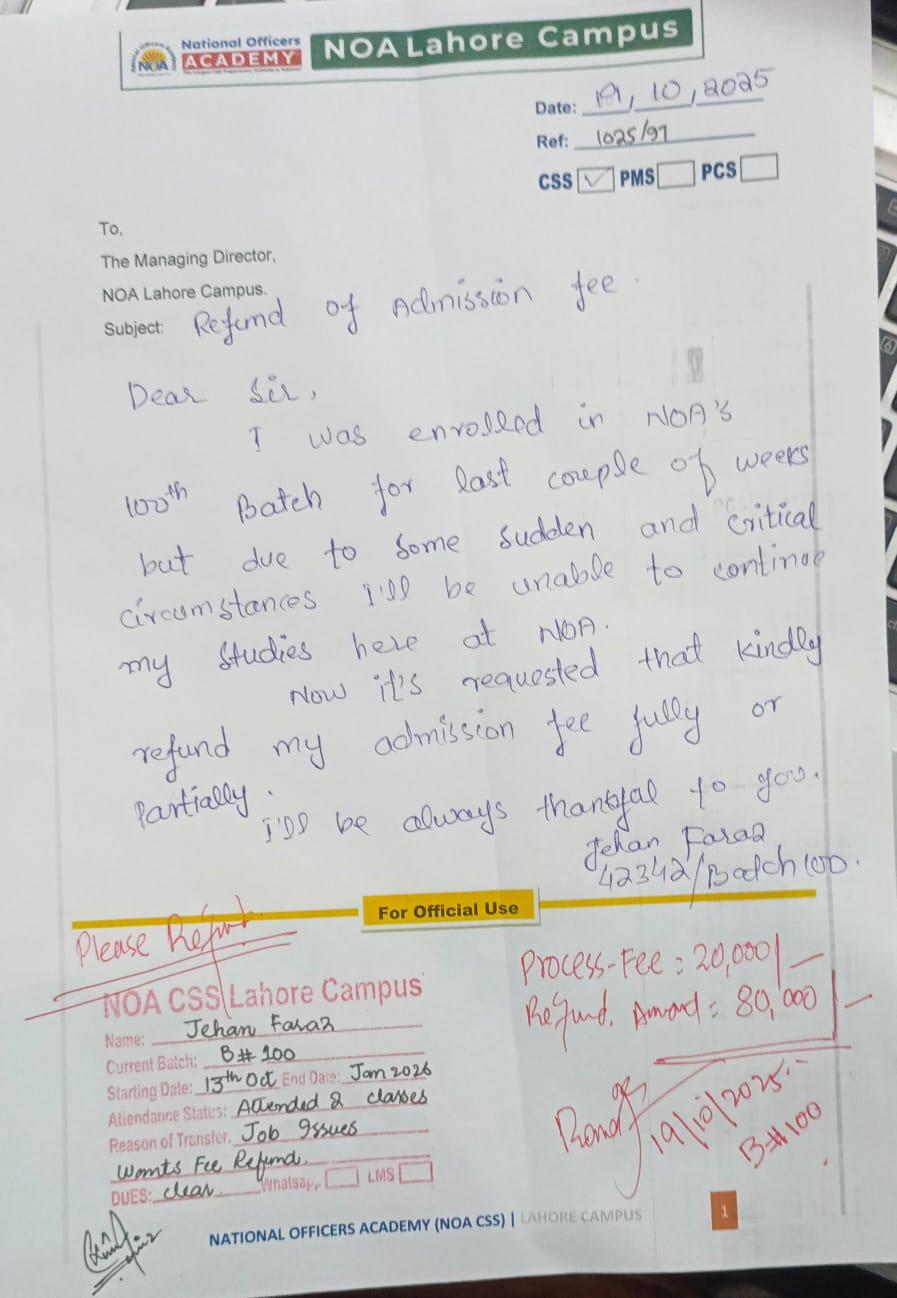 National Officers
ACADEMY
NOA
NOA Lahore Campus
Date: 19, 10, 2025
Ref: 1025/97
CSS ✓ PMS PCS
To,
The Managing Director,
NOA Lahore Campus.
Subject: Refund of Admission fee.
Dear Sir,
I was enrolled in NOA's
100th Batch for last couple of weeks
but due to some sudden and critical
circumstances I'll be unable to continue
my studies here at NOA.
Now it's requested that kindly
refund my admission fee fully or
Partially.
I'll be always thankful to you.
Jehan Faraz
42342/Batch 100.
For Official Use
Please Refund
Process-Fee : 20,000/-
Refund. Amount = 80,000/-
19/10/2025.
B#100
NOA CSS Lahore Campus
Name: Jehan Faraz
Current Batch: B# 100
Starting Date: 13th Oct End Date: Jan 2026
Attendance Status: Attended 2 classes
Reason of Transfer: Job Issues
Wants Fee Refund.
DUES: clear. Whatsapp LMS
NATIONAL OFFICERS ACADEMY (NOA CSS) | LAHORE CAMPUS
1